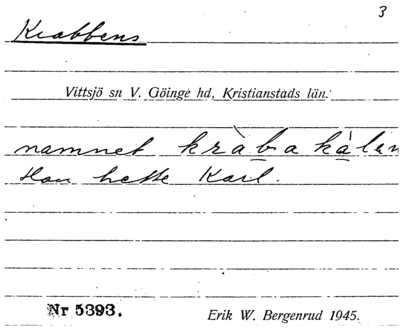 3
Krabbens
Vittsjö sn V. Göinge hd, Kristianstads län.
namnet kràba kálen
Han hette Karl.
Nr 5393.
Erik W. Bergenrud 1945.